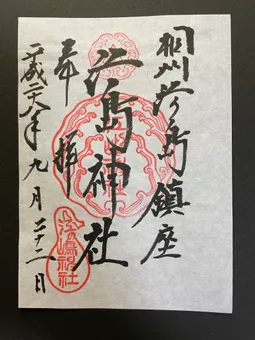 相州江ノ島鎮座
江島神社
奉拝
平成二六年九月二十二日
江嶋神社